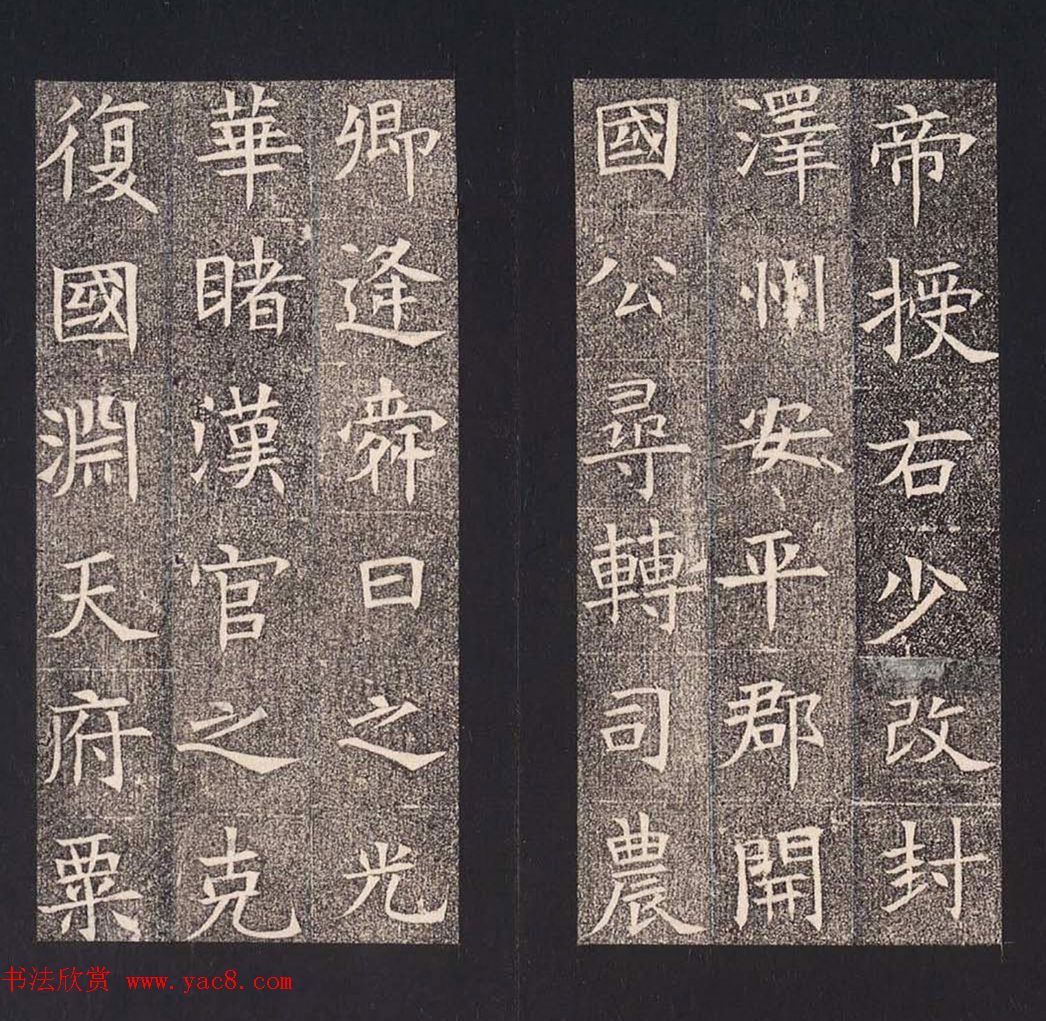 帝授右少改封
澤州安平郡開
國公尋轉司農
卿逢舜日之光
華睹漢官之克
復國淵天府粟
书法欣赏 www.yac8.com